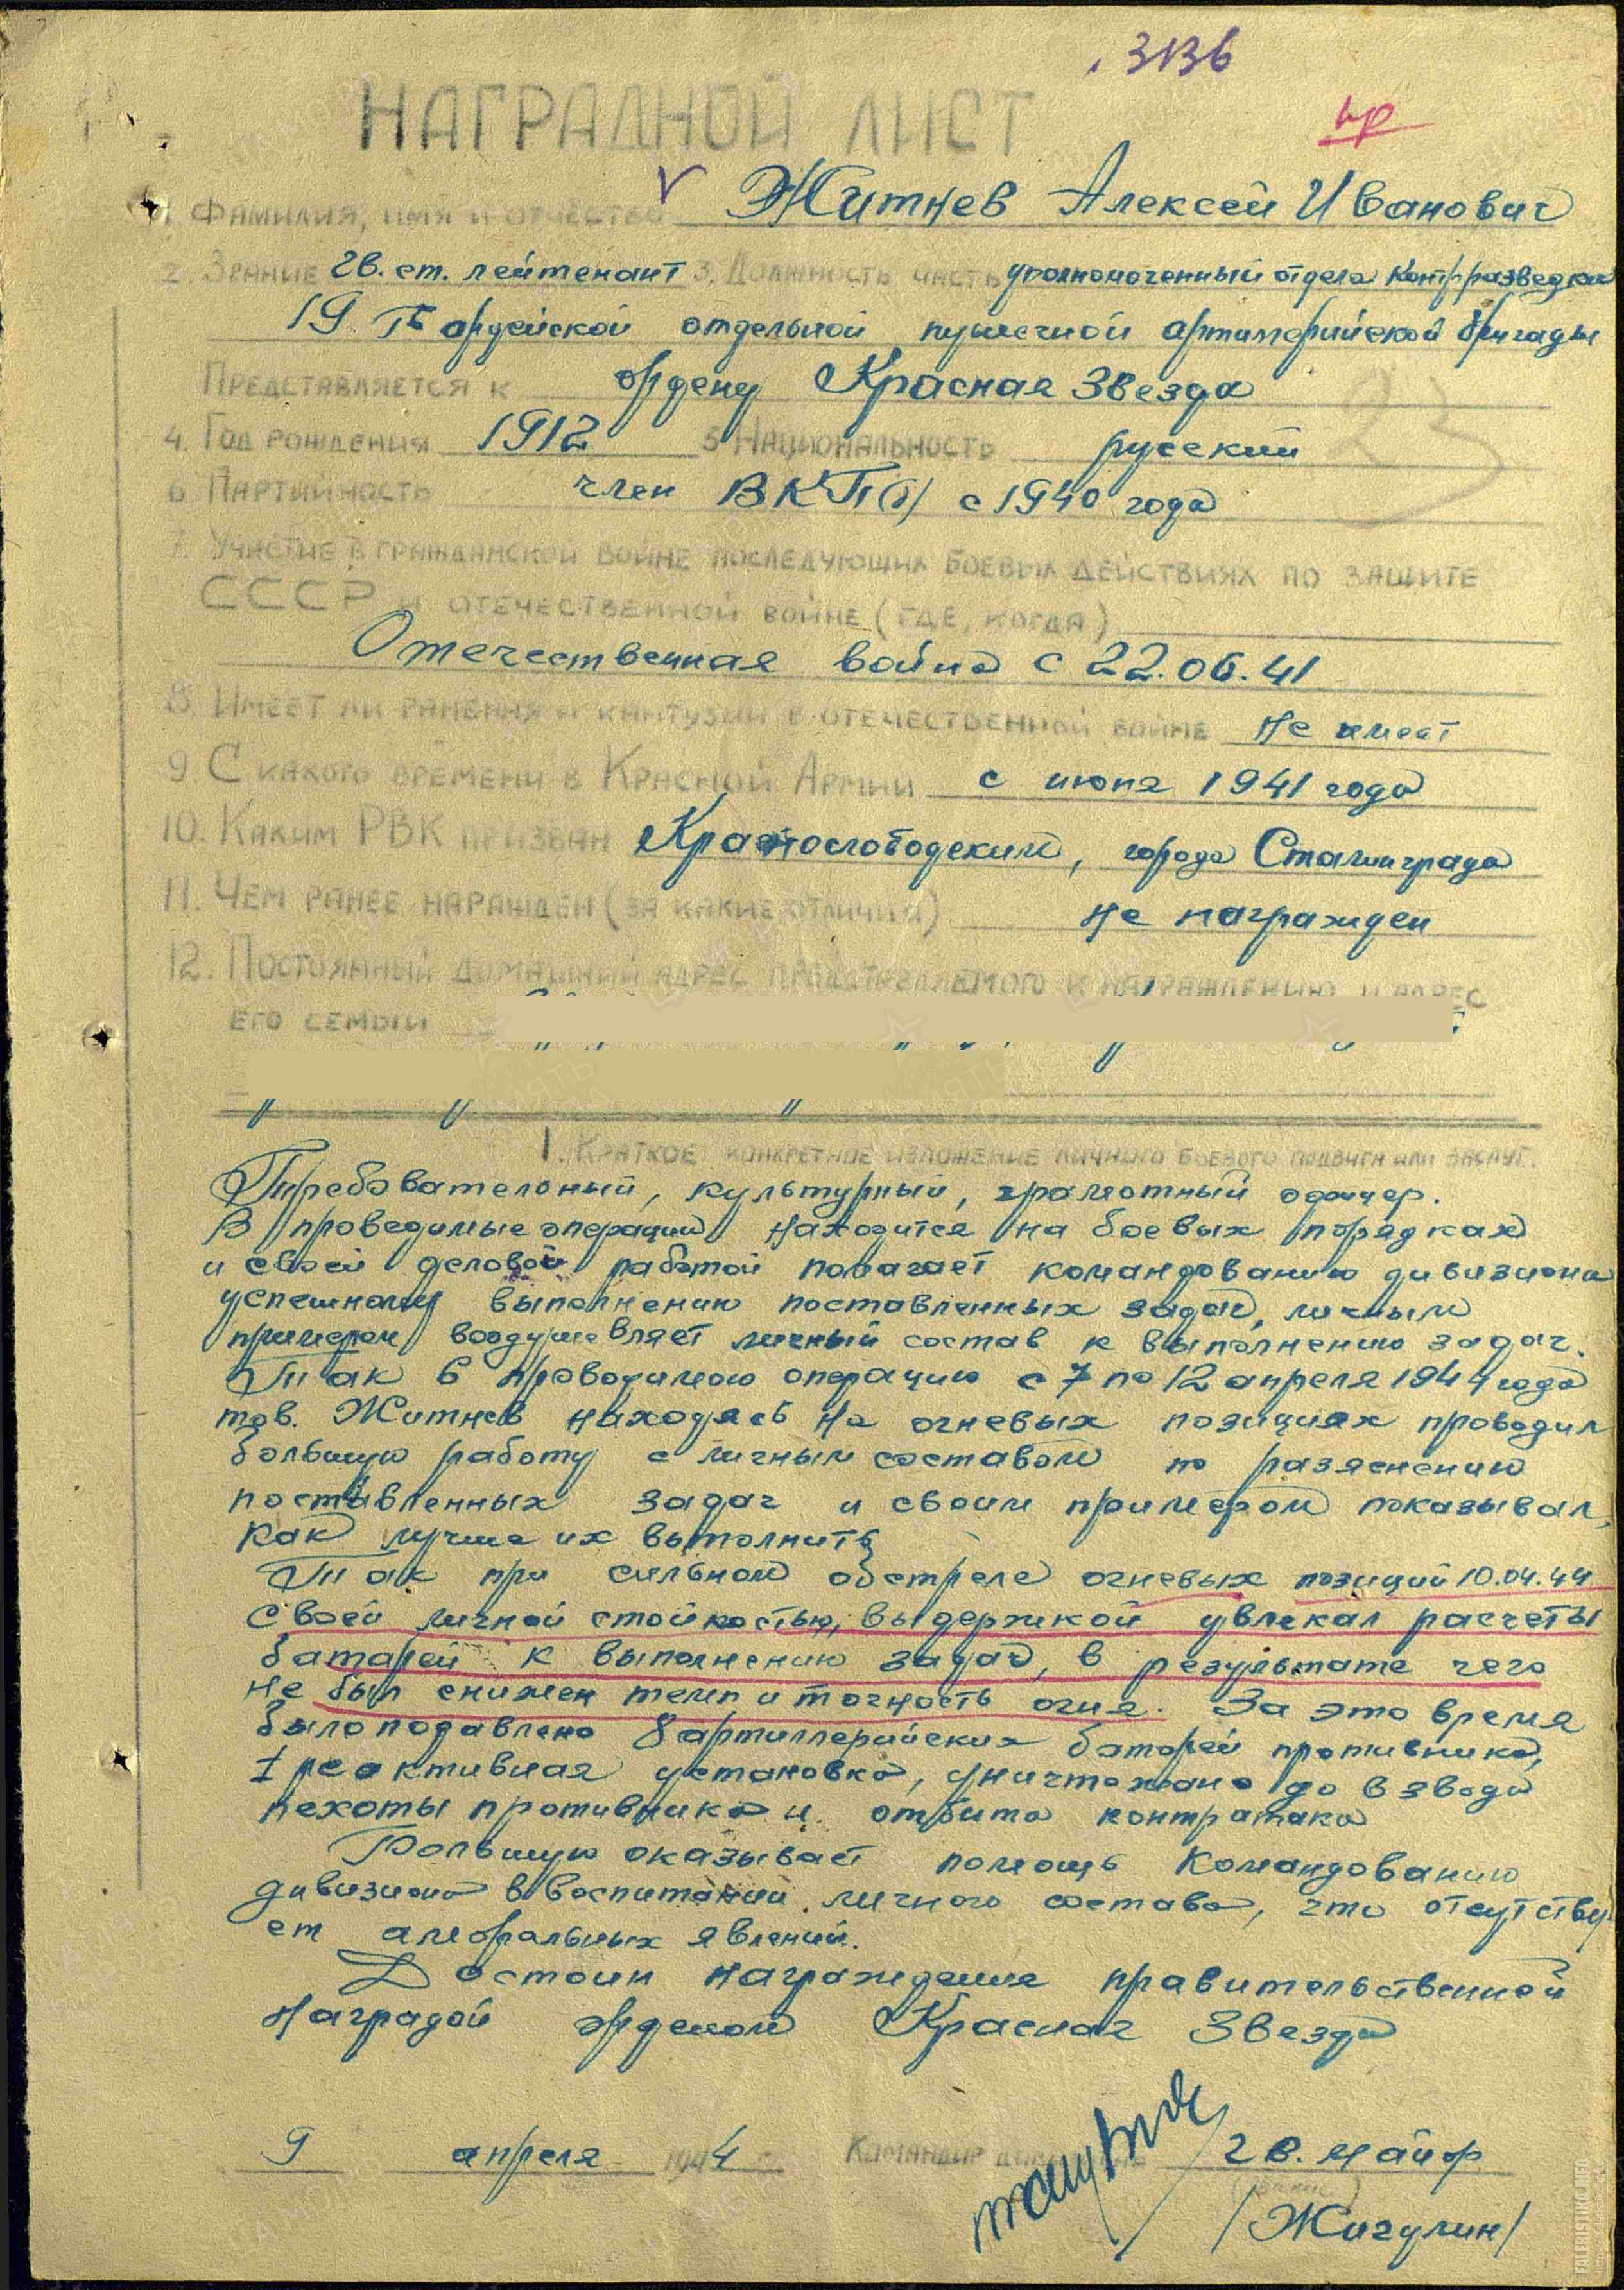 3136
пр
НАГРАДНОЙ ЛИСТ
V
1. Фамилия, имя и отчество Житнев Алексей Иванович
2. Звание гв. ст. лейтенант 3. Должность часть уполномоченный отдела контрразведки
19 Гвардейской отдельной пушечной артиллерийской бригады
Представляется к ордену Красная Звезда
4. Год рождения 1912 5 Национальность русский
6 Партийность член ВКП(б) с 1940 года
23
7. Участие в гражданской войне последующих боевых действиях по защите
СССР и отечественной войне (где, когда)
Отечественная война с 22.06.41
8. Имеет ли ранения и кантузии в отечественной войне не имеет
9 С какого времени в Красной Армии с июня 1941 года
10. Каким РВК призван Краснослободским, города Сталинграда
11. Чем ранее наражден (за какие отличия) не награжден
12. Постоянный домашний адрес представляемого к награждению и адрес
его семьи
1. Краткое конкретное изложение личного боевого подвига или заслуг.
Требовательный, культурный, грамотный офицер.
В проводимые операции находится на боевых порядках
и своей деловой работой помогает командованию дивизиона
успешному выполнению поставленных задач, личным
примером воодушевляет личный состав к выполнению задач.
Так в проводимою операцию с 7 по 12 апреля 1944 года
тов. Житнев находясь на огневых позициях проводил
большую работу с личным составом по разяснению
поставленных задач и своим примером показывал,
как лучше их выполнить
Так при сильном обстреле огневых позиций 10.04.44
своей личной стойкостью, выдержкой увлекал расчеты
батарей к выполнению задач, в результате чего
не был снижен темп и точность огня. За это время
было подавлено 8 артиллерийских батарей противника,
1 реактивная установка, уничтожано до взвода
пехоты противника и отбита контратака
Большую оказывает помощь командованию
дивизиона в воспитании личного состава, что отсутству
ет аморальных явлений.
Достоин награждения правительственной
наградой орденом Красная Звезда
9 апреля 1944 г. Командир гв. майор
/Жигулин/
FALERISTIKA.INFO